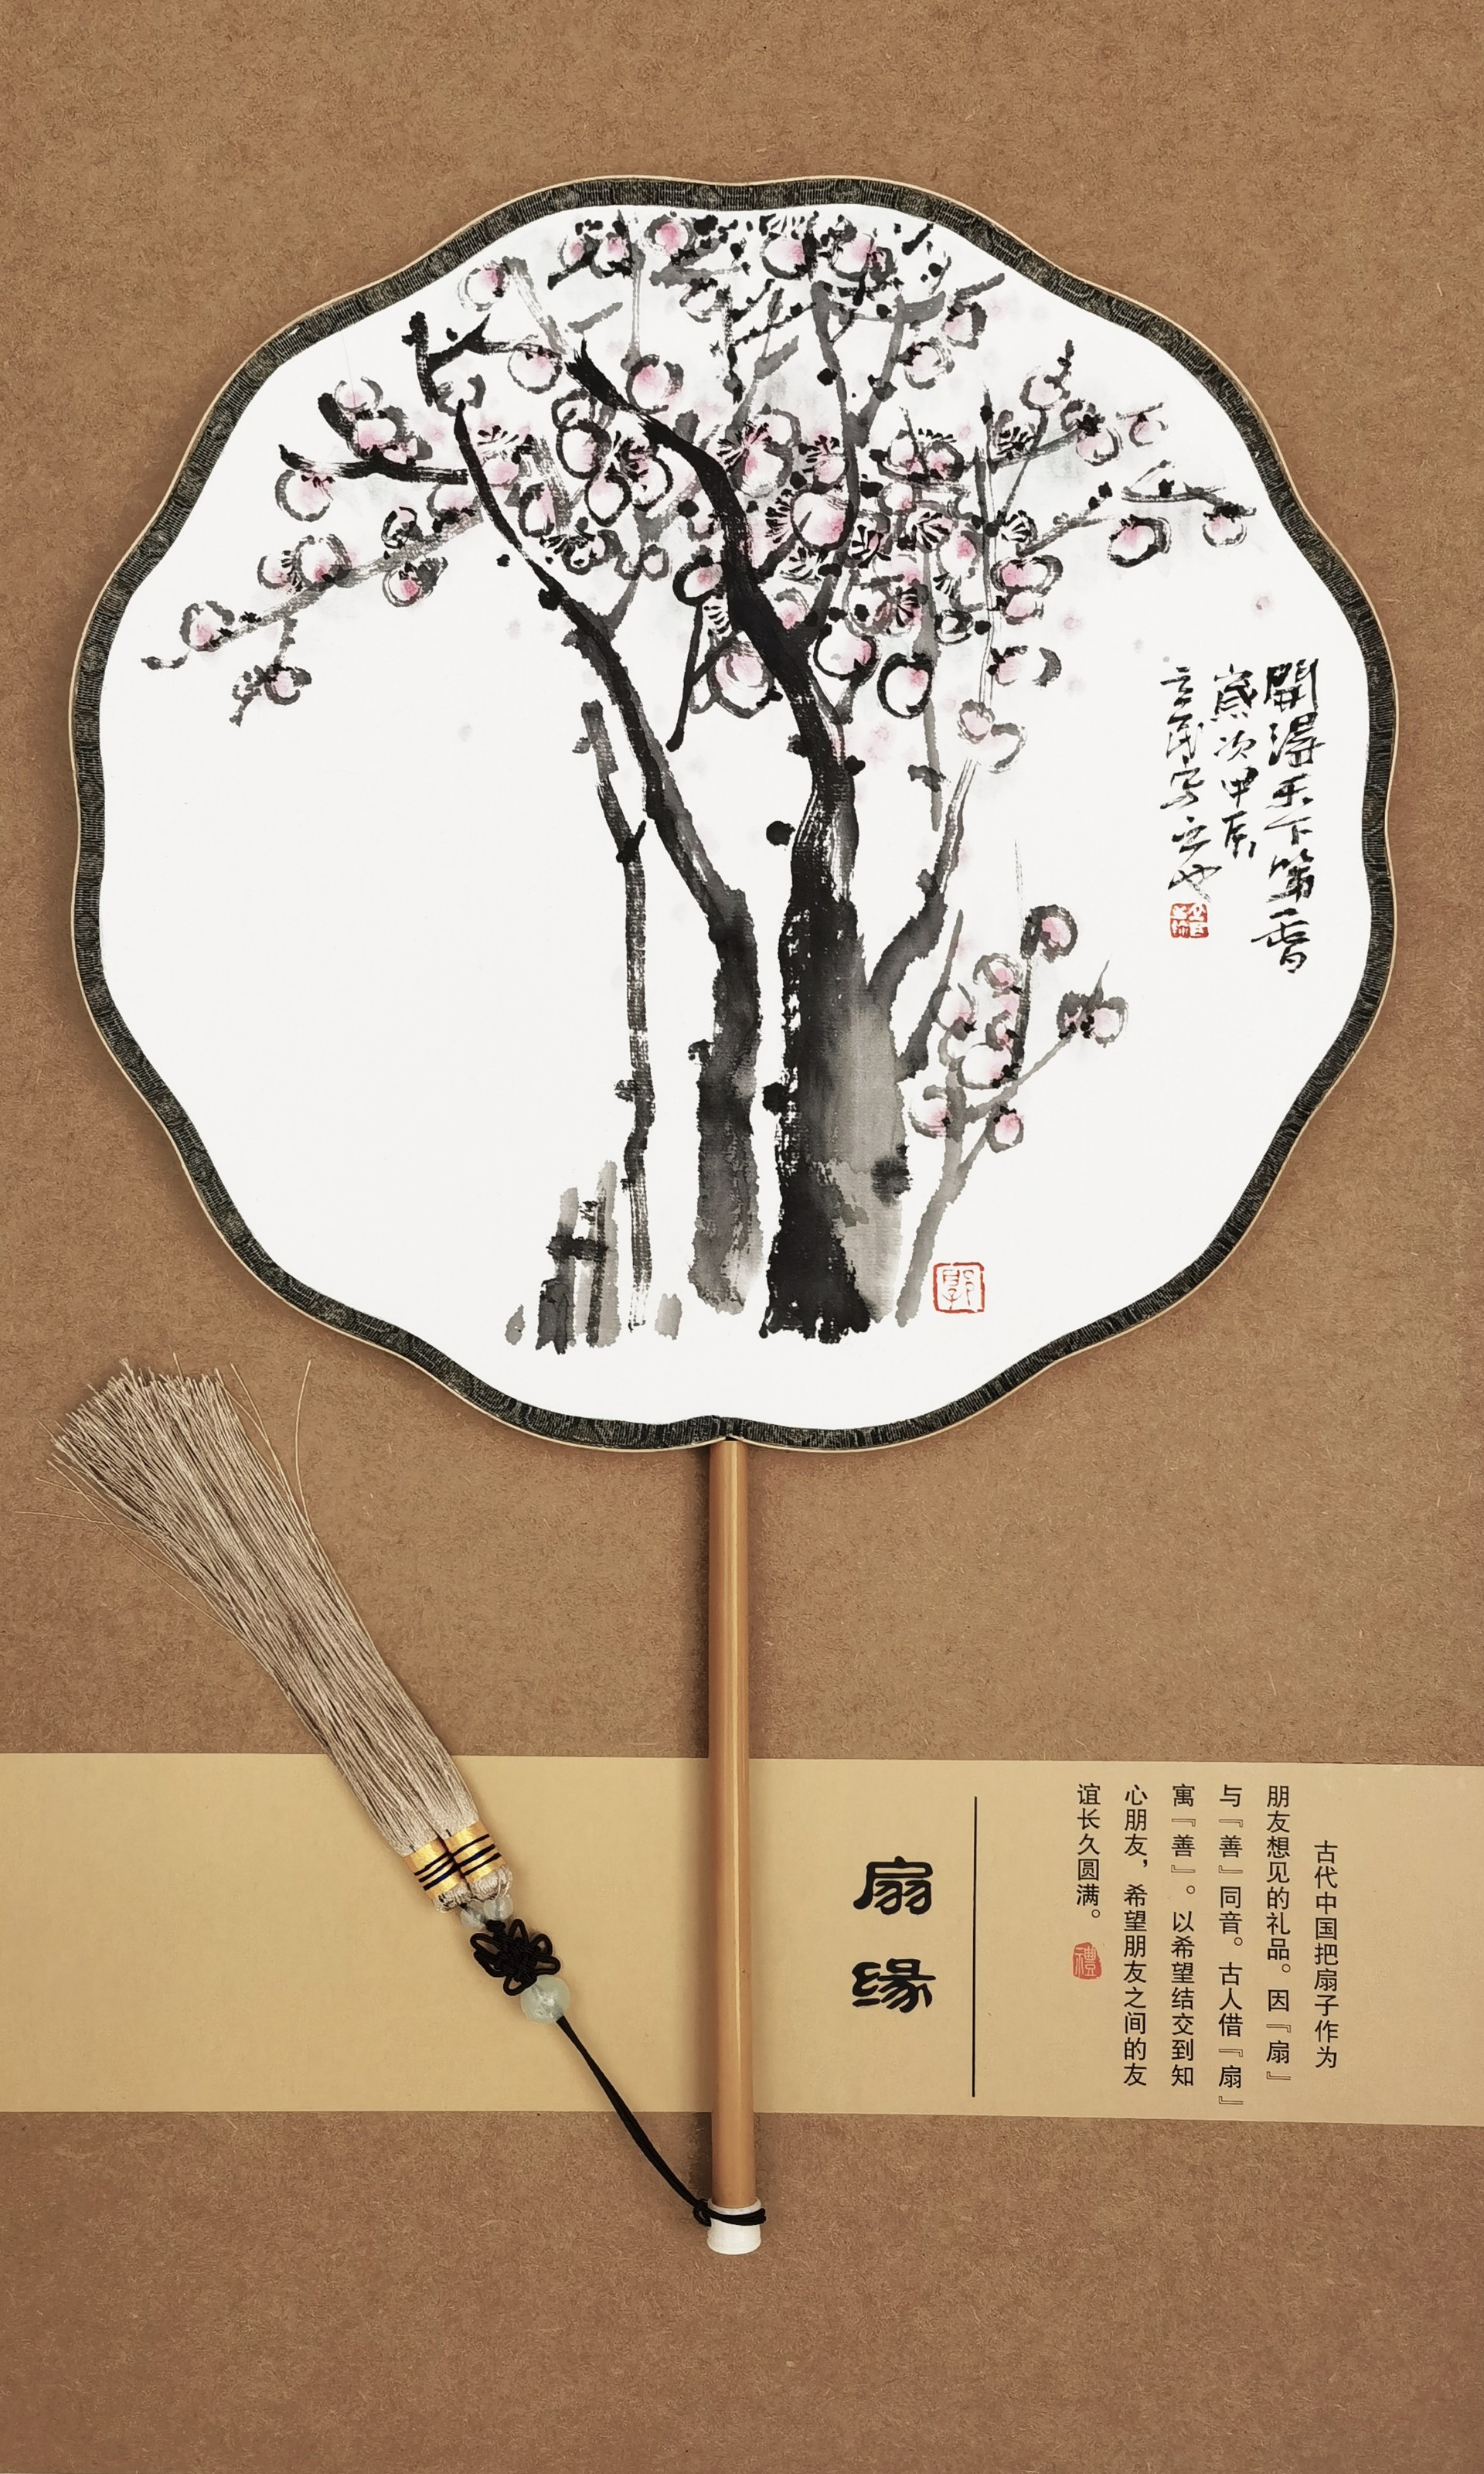 開淂天下第一香
歲次甲辰
民写之也
郭
古代中国把扇子作为
朋友想见的礼品。因『扇』
与『善』同音。古人借『扇』
寓『善』。以希望结交到知
心朋友，希望朋友之间的友
谊长久圆满。
禮
扇缘